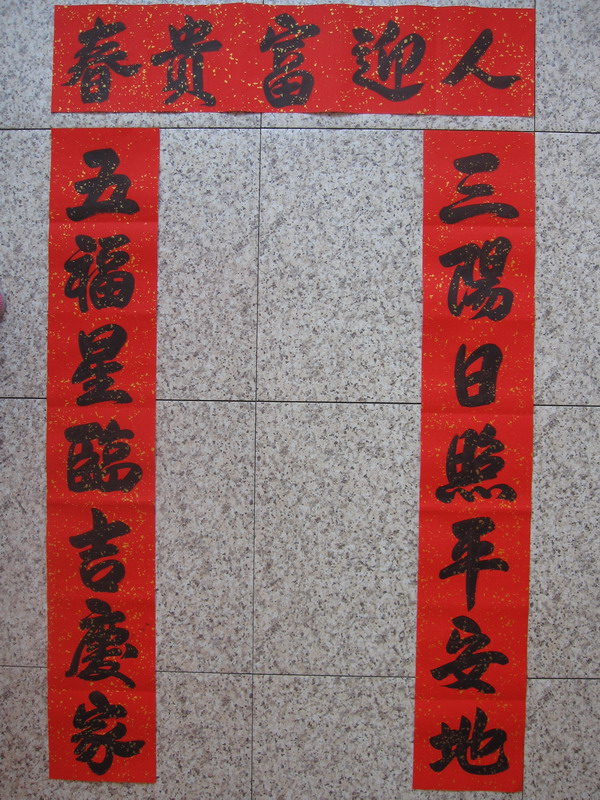 人迎富貴春
三陽日照平安地
五福星臨吉慶家